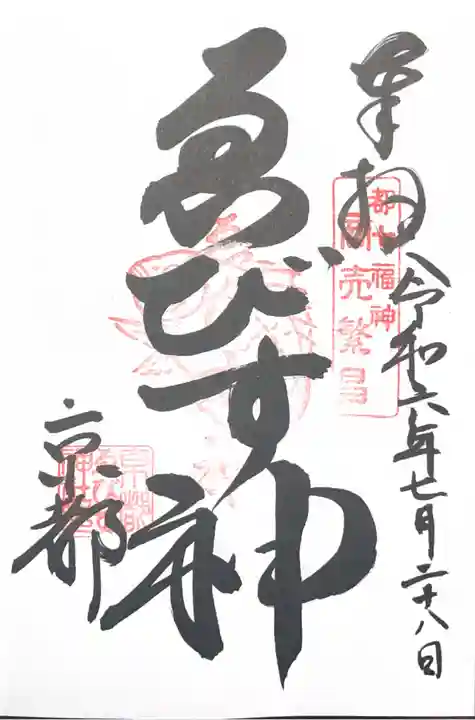 奉拝
令和六年七月二十八日
都七福神
商売繁昌
ゑびす神
京都